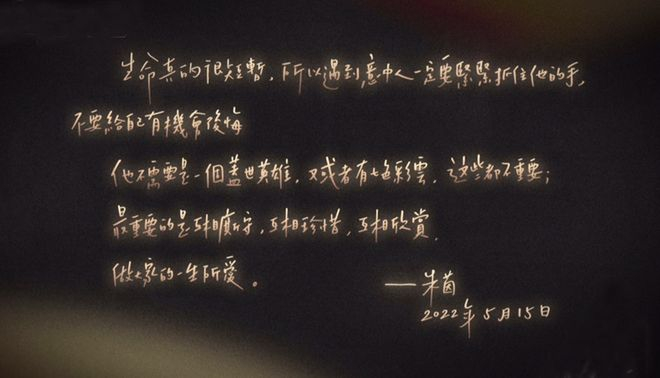 生命真的很短暫，所以遇到意中人一定要緊緊抓住他的手，
不要給自己有機會後悔
他不需要是一個蓋世英雄，又或者有七色彩雲，这些都不重要；
最重要的是互相廝守，互相珍惜，互相欣賞，
做大家的一生所愛。
——朱茵
2022年5月15日